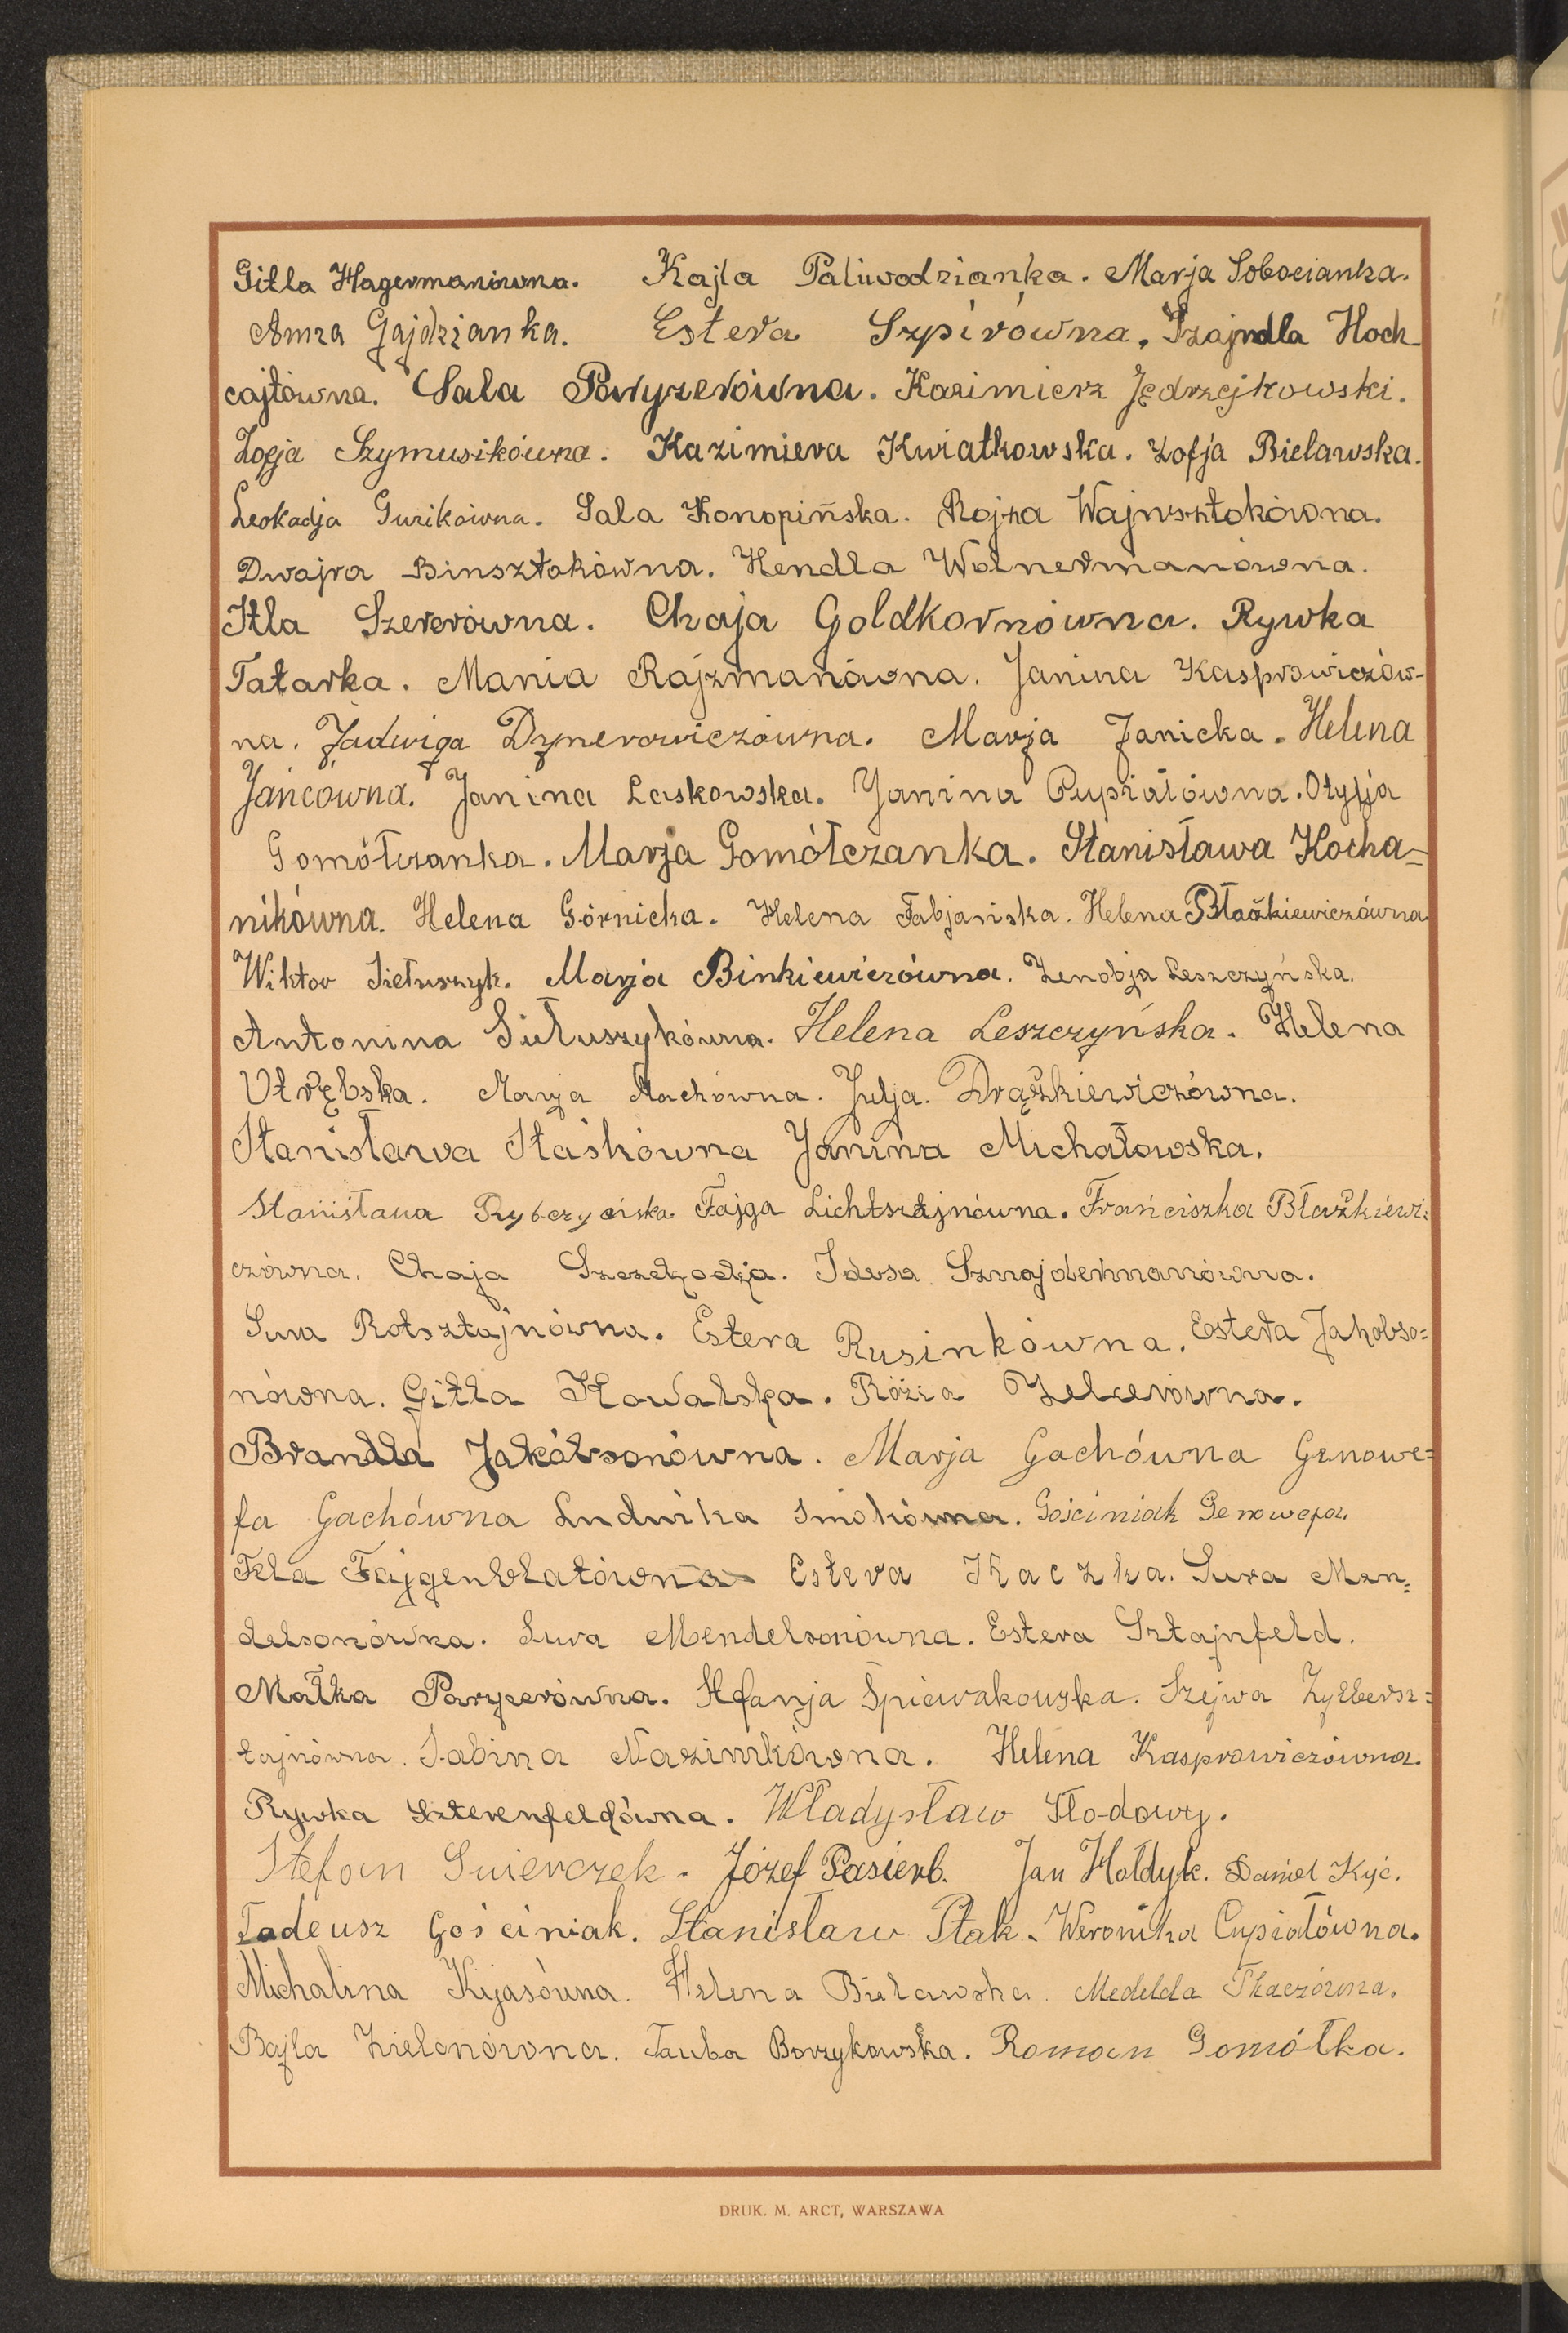 Gitla Hagermanówna. Kajla Paliwodzianka. Marja Sobocianka.
Anna Gajdzianka. Estera Szpirówna. Szajndla Hoch-
cajtówna. Sala Paryzerówna. Kazimierz Jędrzejkowski.
Zofja Szymusikówna. Kazimiera Kwiatkowska. Zofja Bielawska.
Leokadja Guzikówna. Sala Konopińska. Rojza Wajnsztokówna.
Dwajra Binsztokówna. Hendla Wolnermanówna.
Itla Szererówna. Chaja Goldkornówna. Rywka
Tatarka. Mania Rajzmanówna. Janina Kasprowiczów-
na. Jadwiga Dynerowiczówna. Marja Janicka. Helena
Jańcówna. Janina Laskowska. Janina Cupiałówna. Otylja
Gomółczanka. Marja Gomółczanka. Stanisława Kocha=
nikówna. Helena Górnicka. Helena Fabjańska. Helena Błażkiewiczówna.
Wiktor Siełuszyk. Marja Binkiewiczówna. Zenobja Leszczyńska.
Antonina Siełuszykówna. Helena Leszczyńska. Helena
Utrębska. Marja Machówna. Julja. Drążkiewiczówna.
Stanisława Staśkówna Janina Michałowska.
Stanisława Rybczyńska Fajga Lichtsztajnówna. Franciszka Błażkiewi=
czówna. Chaja Idesa Sznajdermanówna.
Sura Rotsztajnówna. Estera Rusinkówna. Estera Jakobso=
nówna. Gitla Kowalska. Rózia Zelcerówna.
Brandla Jakóbsonówna. Marja Gachówna Genowe=
fa Gachówna Ludwika Smokówna. Gościniak Genowefa.
Fela Fajgenblatówna Estera Kaczka. Sura Men=
delsonówna. Sura Mendelsonówna. Estera Sztajnfeld.
Małka Paryzerówna. Stefanja Śpiewakowska. Szejwa Zylbersz=
tajnówna. Sabina Nazimkówna. Helena Kasprowiczówna.
Rywka Szterenfeldówna. Władysław Słodowy.
Stefan Swierczek. Józef Pasierb. Jan Hołdyk. Daniel Kyć.
Tadeusz Gościniak. Stanisław Ptak. Weronika Cupiałówna.
Michalina Kijasówna. Helena Bielawska. Tkaczówna.
Bajla Zielonówna. Tauba Borzykowska. Roman Gomółka.
DRUK. M. ARCT, WARSZAWA